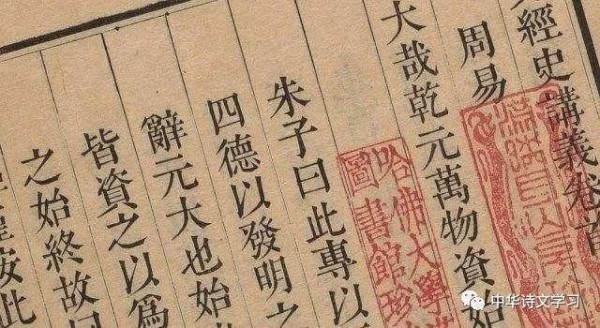 經史講義卷首
周易
大哉乾元萬物資始
朱子曰此專以
四德以發明之
辭元大也始
皆資之以爲
之始終故曰
按此
哈佛大學
圖書館珍
中华诗文学习